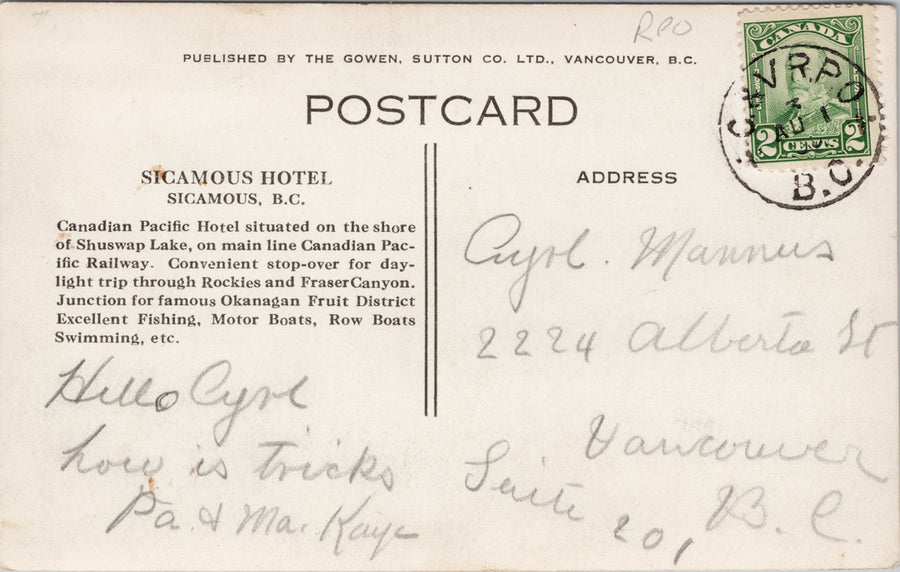 RPO
PUBLISHED BY THE GOWEN, SUTTON CO. LTD., VANCOUVER, B.C.
POSTCARD
CANADA
2 CENTS 2
R.P.O.
AU 1
B.C.
SICAMOUS HOTEL
SICAMOUS, B.C.
Canadian Pacific Hotel situated on the shore
of Shuswap Lake, on main line Canadian Pac-
ific Railway. Convenient stop-over for day-
light trip through Rockies and Fraser Canyon.
Junction for famous Okanagan Fruit District
Excellent Fishing, Motor Boats, Row Boats
Swimming, etc.
Hello Cyrl
how is tricks
Pa. & Ma. Kaye
ADDRESS
Cyrl. Mannus
2224 Alberta St
Vancouver
Suite 20, B.C.